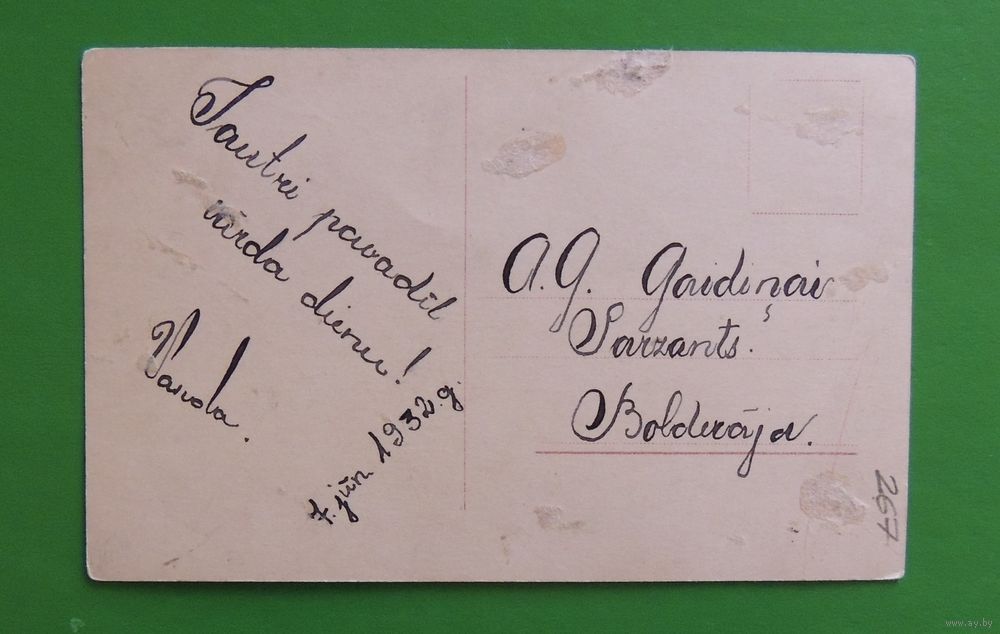 Jautri pavadīt
vārda dienu!
Vanda.
7. jūn. 1932. g.
A. G. Gaidiņai
Sarzants.
Bolderāja.
267
www.ay.by